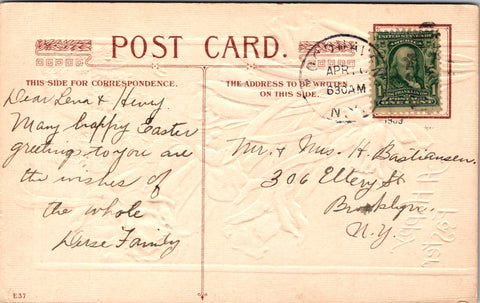 POST CARD.
THIS SIDE FOR CORRESPONDENCE.
THE ADDRESS TO BE WRITTEN
ON THIS SIDE.
APR
630AM
N.Y.
1909
UNITED STATES
FRANKLIN
1 1
ONE CENT
Dear Lena & Henry
Many happy Easter
greetings to you are
the wishes of
the whole
Family
Mr. & Mrs. H. Bastiansen.
306 Ellery St
Brooklyn.
N.Y.
E37